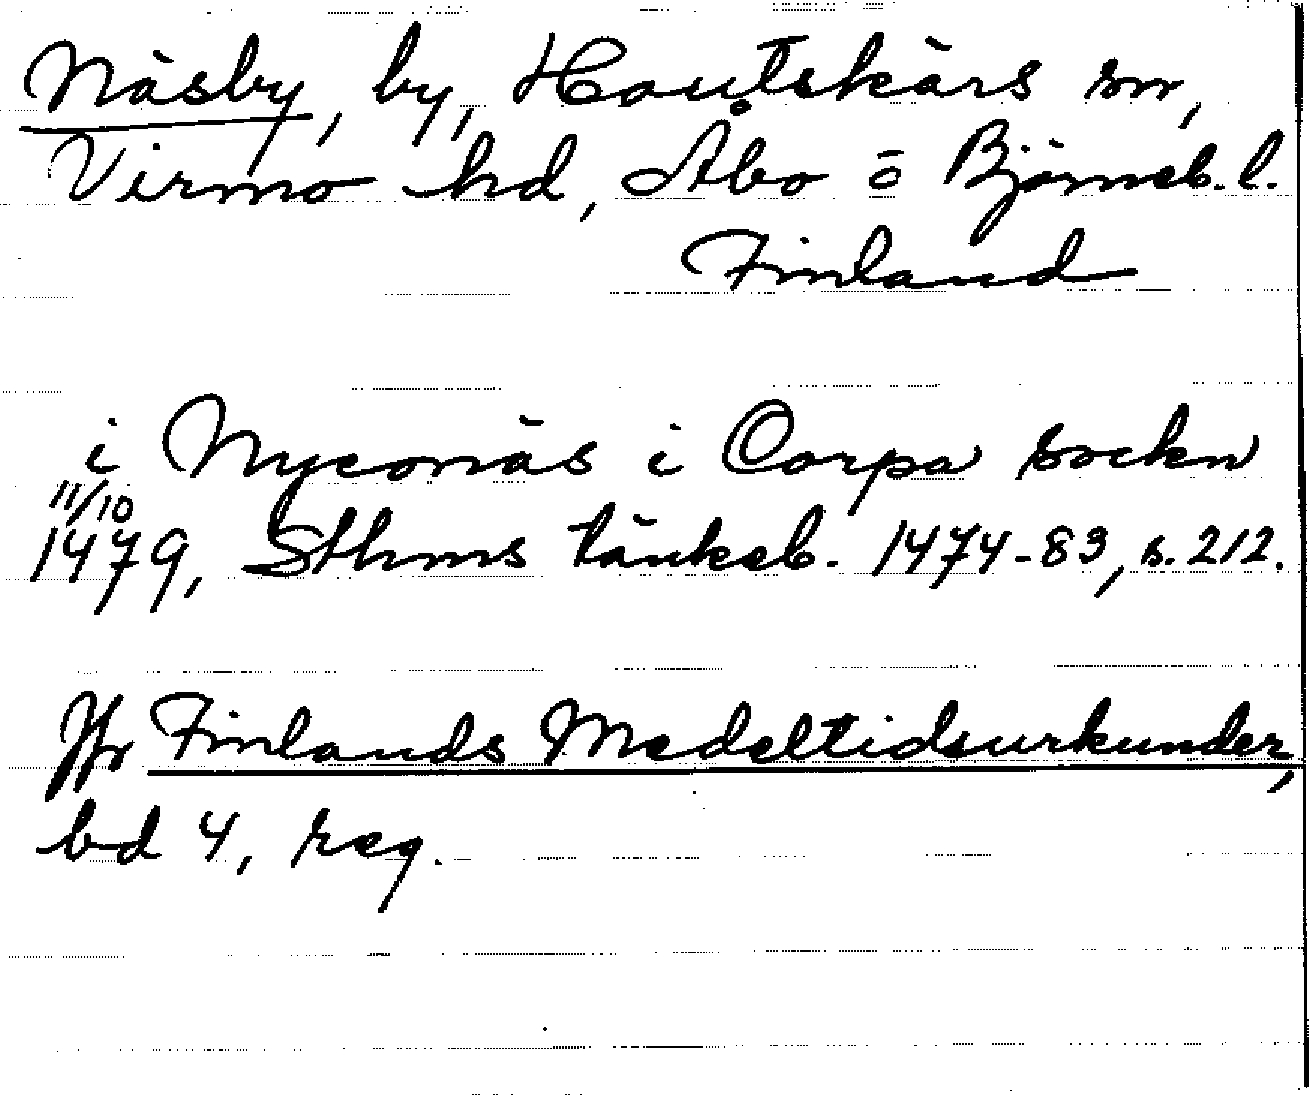 Näsby, by, Houtskärs sn,
Virmo hd, Åbo o Björneb. l.
Finland
i Nyconäs i Corpa sockn
11/10
1479, Sthms tänkeb. 1474-83, s. 212.
Jfr Finlands Medeltidsurkunder,
bd 4, reg.